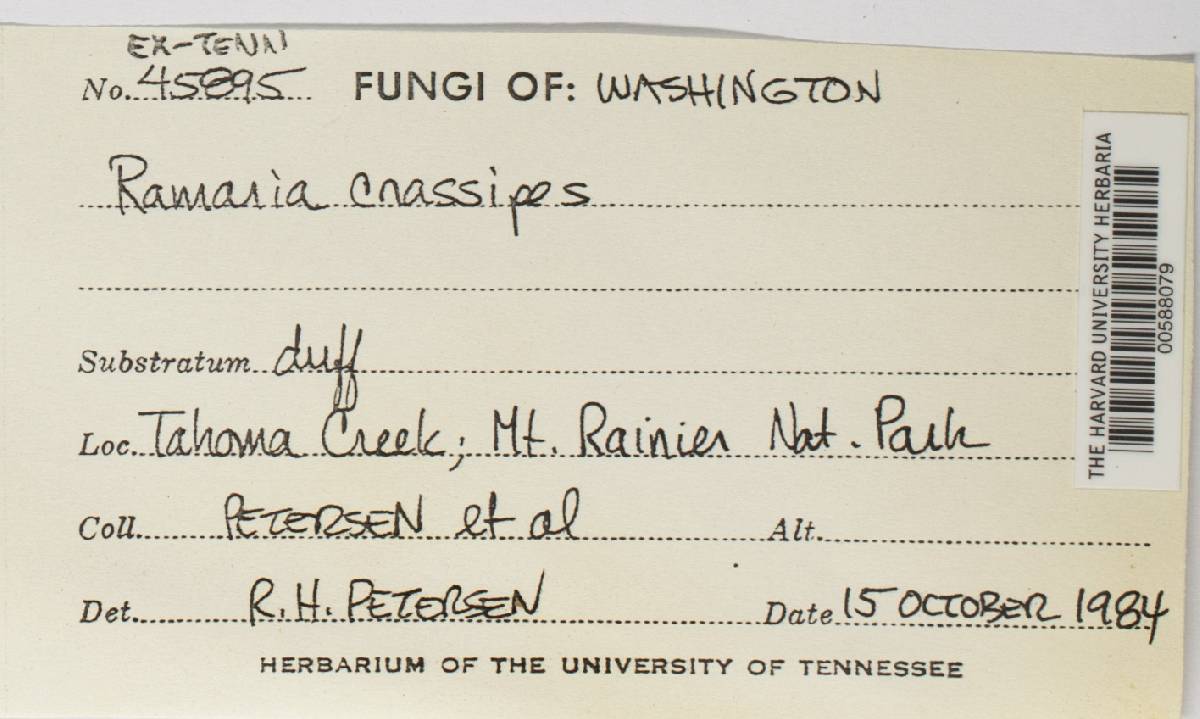 EX-TENN
No. 45895 FUNGI OF: WASHINGTON
Ramaria crassipes
Substratum duff
Loc. Tahoma Creek; Mt. Rainier Nat. Park
Coll. PETERSEN et al Alt.
Det. R.H. PETERSEN Date 15 OCTOBER 1984
HERBARIUM OF THE UNIVERSITY OF TENNESSEE
THE HARVARD UNIVERSITY HERBARIA
00588079